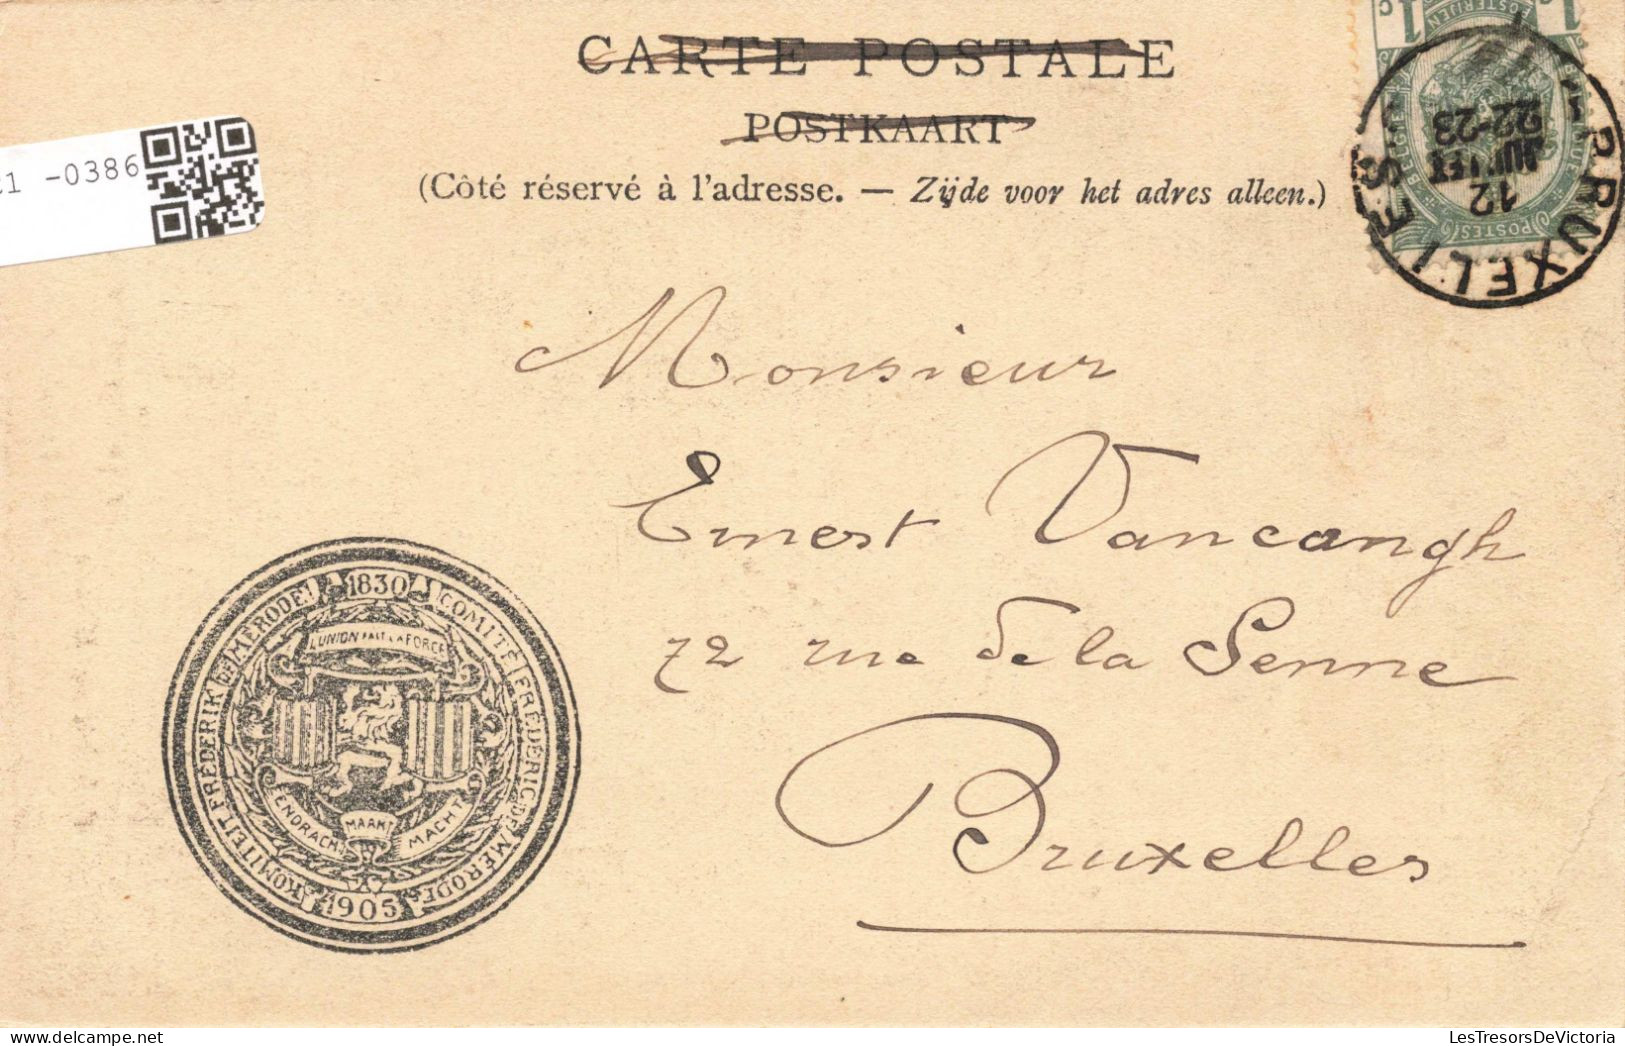 CARTE POSTALE
POSTKAART
(Côté réservé à l'adresse. — Zijde voor het adres alleen.)
-0386
POSTES
1 1
BRUXELLES
12
JUILLET
22-23
Monsieur
Ernest Vancangh
72 rue de la Senne
Bruxelles
1830
COMITÉ FRÉDÉRIC DE MÉRODE
1905
KOMITEIT FREDERIK DE MÉRODE
L'UNION FAIT LA FORCE
EENDRACHT MAAKT MACHT
LesTresorsDeVictoria